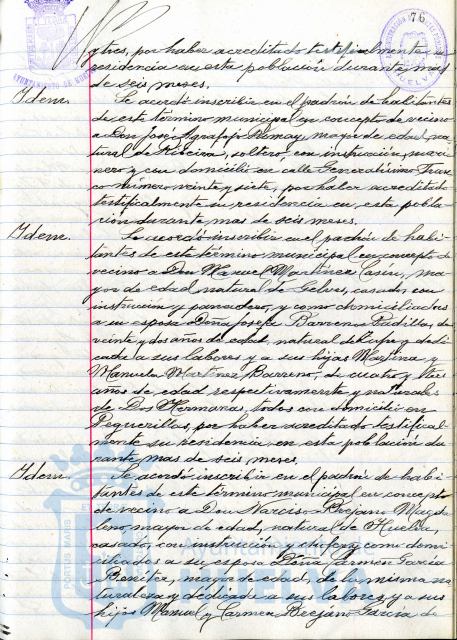 76
y tres, por haber acreditado testifialmente su
residencia en esta población durante mas
de seis meses.
Idem. Se acordó inscribir en el padrón de habitantes
de este término municipal en concepto de vecino
a Don José Agrafojo Lemay, mayor de edad, na-
tural de Riveira, soltero, con instrucción, mari-
nero y con domicilio en calle Generalísimo Fran-
co número veinte y siete, por haber acreditado
testifialmente su residencia en esta pobla-
ción durante mas de seis meses.
Idem. Se acordó inscribir en el padrón de habi-
tantes de este término municipal en concepto de
vecino a Don Manuel Martínez Casin, ma-
yor de edad, natural de Gelves, casado, con
instrucción y panadero, y como domiciliados
a su esposa Doña Josefa Barreno Padilla, de
veinte y dos años de edad, natural de Lepe y dedi-
cada a sus labores y a sus hijas Martina y
Manuela Martínez Barreno, de cuatro y tres
años de edad respectivamente y naturales
de Dos Hermanas, todos con domicilio en
Peguerillas, por haber acreditado testifial-
mente su residencia en esta población du-
rante mas de seis meses.
Idem. Se acordó inscribir en el padrón de habi-
tantes de este término municipal en concepto
de vecino a Don Narciso Brejano Mag da-
leno, mayor de edad, natural de Huelva,
casado, con instrucción, y como domi-
ciliados a su esposa Doña Carmen García
Benítez, mayor de edad, de la misma na-
turaleza y dedicada a sus labores y a sus
hijos Manuel y Carmen Brejano García de